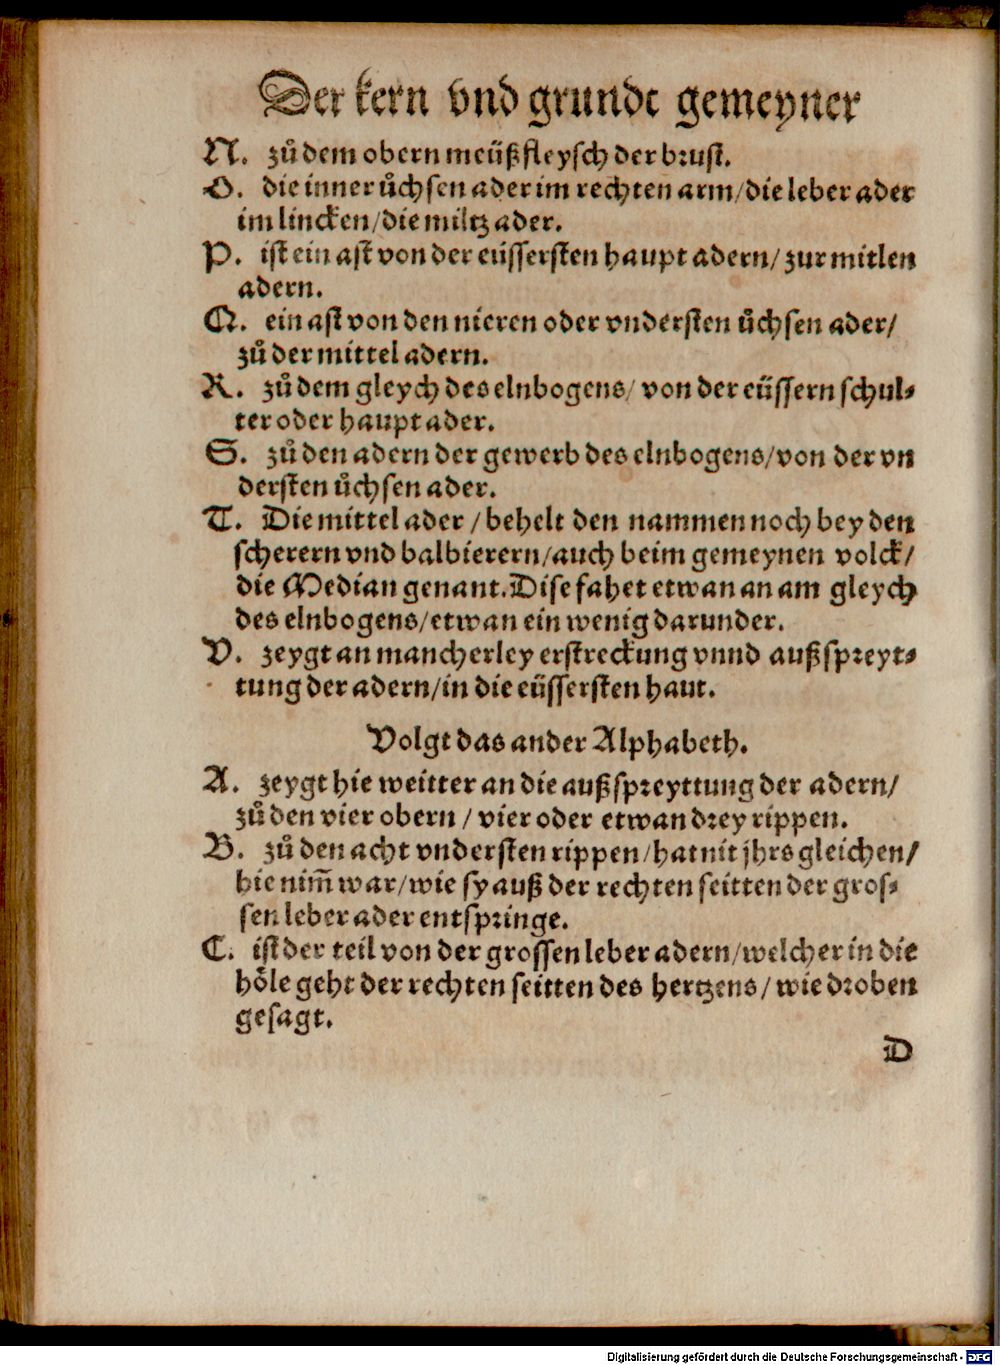 Der kern vnd grundt gemeyner
N. zů dem obern meüßfleysch der brust.
O. die inner ůchsen ader im rechten arm/die leber ader
im lincken/die miltz ader.
P. ist ein ast von der eüssersten haupt adern/ zur mitlen
adern.
Q. ein ast von den nieren oder vndersten ůchsen ader/
zů der mittel adern.
R. zů dem gleych des elnbogens/ von der eüssern schul⸗
ter oder haupt ader.
S. zů den adern der gewerb des elnbogens/von der vn
dersten ůchsen ader.
T. Die mittel ader / behelt den nammen noch bey den
scherern vnd balbierern/auch beim gemeynen volck/
die Median genant. Dise fahet etwan an am gleych
des elnbogens/etwan ein wenig darunder.
V. zeygt an mancherley erstreckung vnnd außspreyt⸗
tung der adern/in die eüssersten haut.
Volgt das ander Alphabeth.
A. zeygt hie weitter an die außspreyttung der adern/
zů den vier obern / vier oder etwan drey rippen.
B. zů den acht vndersten rippen/hat nit jhrs gleichen/
hie nim̄ war/wie sy auß der rechten seitten der gros⸗
sen leber ader entspringe.
C. ist der teil von der grossen leber adern/welcher in die
hőle geht der rechten seitten des hertzens/ wie droben
gesagt.
D
Digitalisierung gefördert durch die Deutsche Forschungsgemeinschaft - DFG